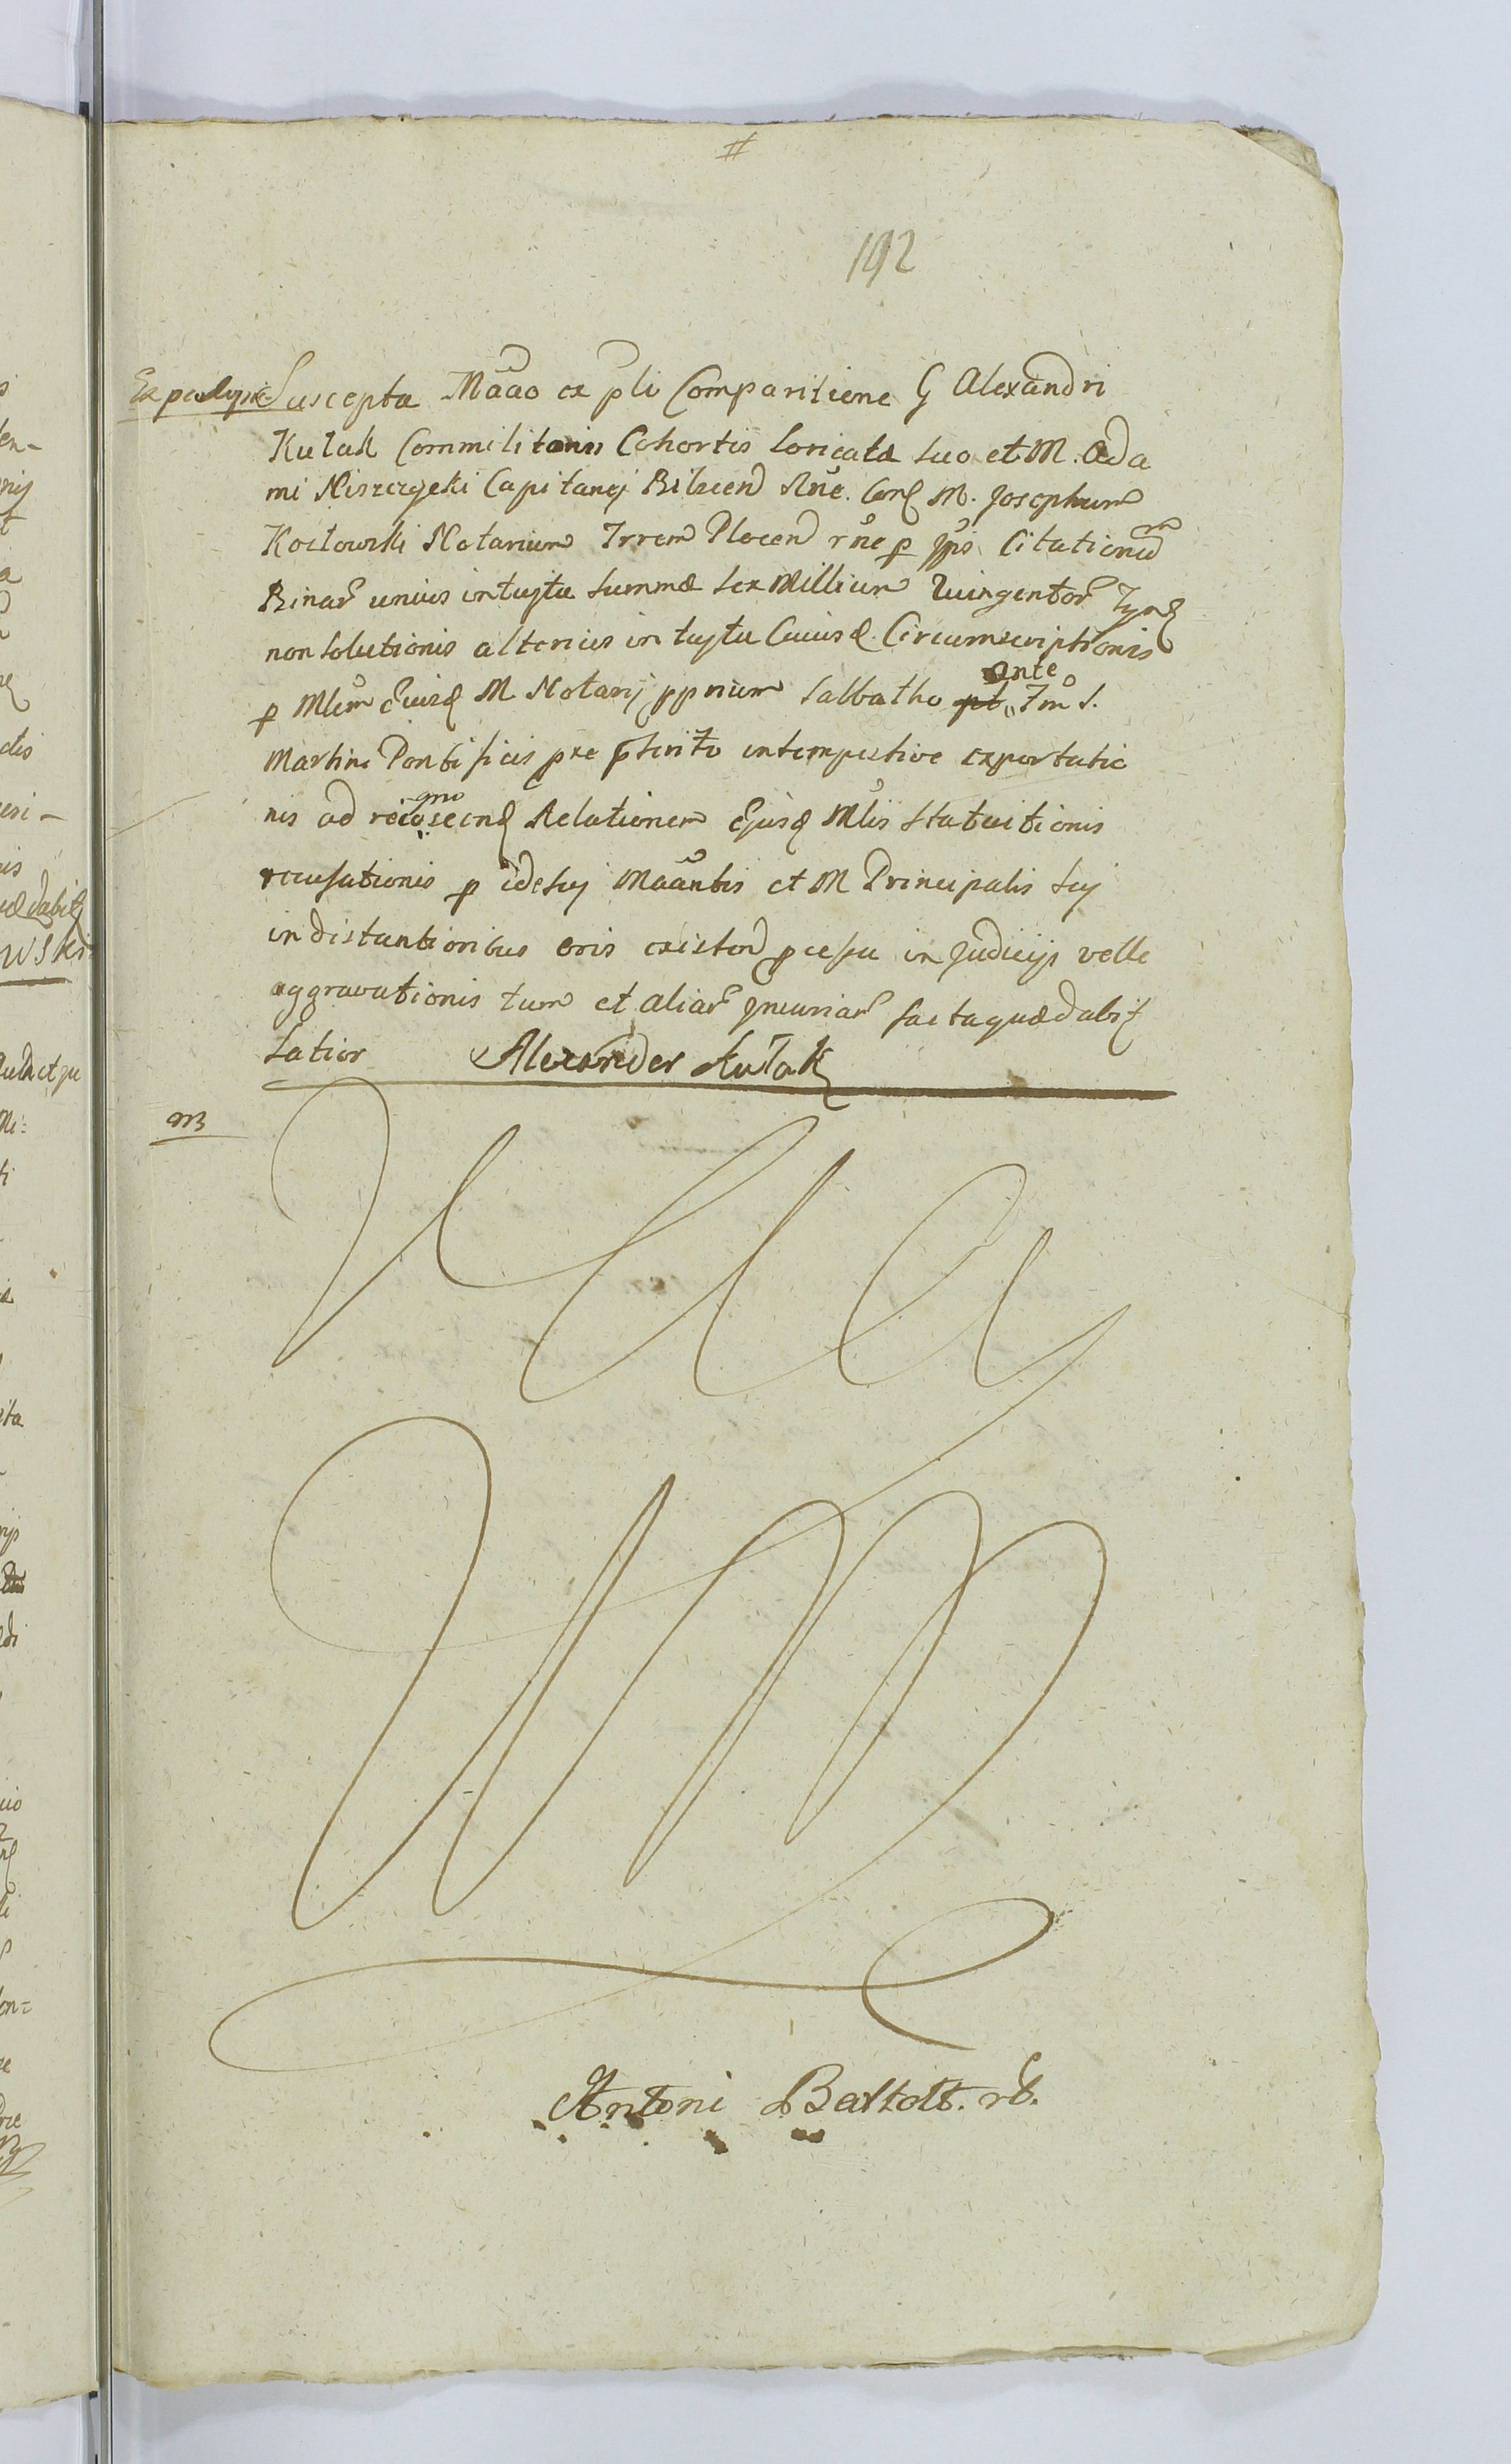 #
192
Suscepta Maão ex pli Comparitione G Alexandri
Kułak Commilitonis Cohortis loricatæ suo et M. Ada
mi Niszczycki Capitanej Bilscen Nne. Con M. Josephum
Kozłowski Notarium Trrem Plocen rne p Citationum
Binar unius intuytu summæ sex Millium Quingentor
non solutionis alterius intuytu Cuiusd. Circumscriptionis
p Mlem Eiusd M Notarij pprium Sabbatho ante Fm S.
Martini Pontificis pxe pterito intempestive exportatio
nis ad recognoscend Relationem Ejusd Mlis Statuitionis
recusationis p idesuj Maantis et M Principalis suj
in distantioribus oris existen pcessu in Judicijs velle
aggravationis tum et aliar Jnjuriar facta quædabit
latior Alexander Kułak
m
Antoni